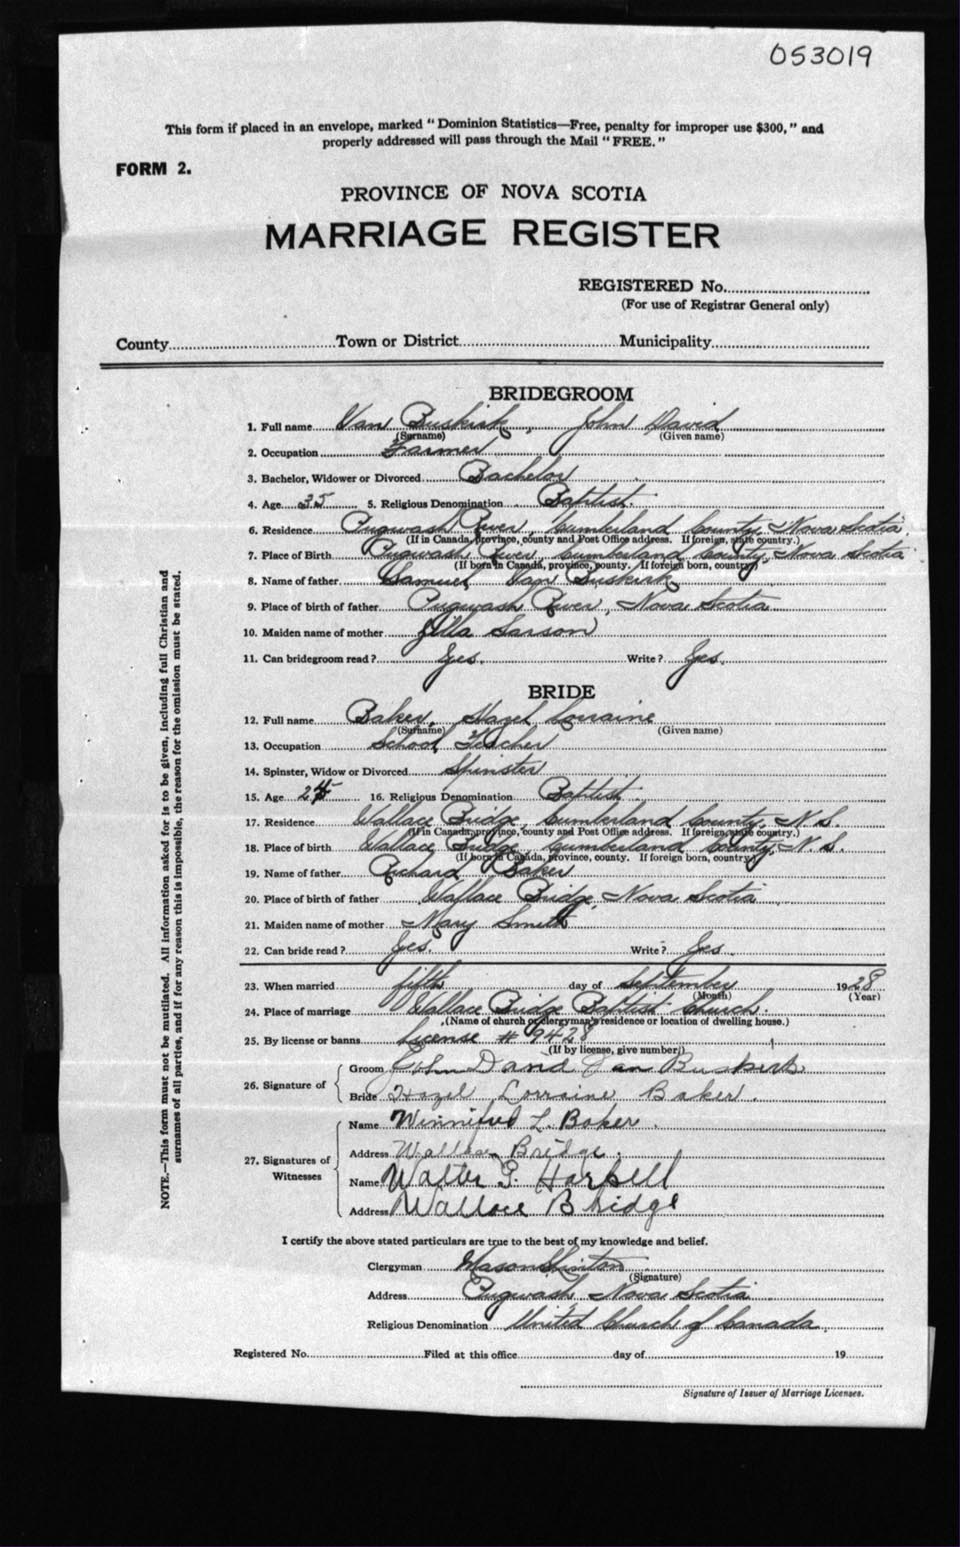 053019
This form if placed in an envelope, marked "Dominion Statistics—Free, penalty for improper use $300," and
properly addressed will pass through the Mail "FREE."
FORM 2.
PROVINCE OF NOVA SCOTIA
MARRIAGE REGISTER
REGISTERED No.
(For use of Registrar General only)
County Town or District Municipality
BRIDEGROOM
1. Full name Van Buskirk, John David
(Surname) (Given name)
2. Occupation Farmer
3. Bachelor, Widower or Divorced Bachelor
4. Age 35 5. Religious Denomination Baptist.
6. Residence Pugwash River, Cumberland County, Nova Scotia
(If in Canada, province, county and Post Office address. If foreign, state country.)
7. Place of Birth Pugwash River, Cumberland County, Nova Scotia
(If born in Canada, province, county. If foreign born, country)
8. Name of father Samuel Van Buskirk
9. Place of birth of father Pugwash River, Nova Scotia
10. Maiden name of mother Sarson
11. Can bridegroom read? Yes. Write? Yes.
BRIDE
12. Full name Baker, Hazel Lorraine
(Surname) (Given name)
13. Occupation School Teacher
14. Spinster, Widow or Divorced Spinster
15. Age 16. Religious Denomination Baptist
17. Residence Wallace Bridge, Cumberland County, N.S.
(If in Canada, province, county and Post Office address. If foreign, state country.)
18. Place of birth Wallace Bridge, Cumberland County, N.S.
(If born in Canada, province, county. If foreign born, country)
19. Name of father Richard Baker
20. Place of birth of father Wallace Bridge, Nova Scotia
21. Maiden name of mother Mary Smith
22. Can bride read? Yes. Write? Yes
23. When married fifth day of September 1928
(Month) (Year)
24. Place of marriage Wallace Bridge Baptist Church.
(Name of church or clergyman's residence or location of dwelling house.)
25. By license or banns License # 9428
(If by license, give number)
26. Signature of
Groom John David Van Buskirk
Bride Hazel Lorraine Baker.
27. Signatures of Witnesses
Name Winnifred L. Baker.
Address Wallace Bridge.
Name Walter G. Harpell
Address Wallace Bridge
I certify the above stated particulars are true to the best of my knowledge and belief.
Clergyman Mason Linton
(Signature)
Address Pugwash Nova Scotia
Religious Denomination United Church of Canada.
Registered No. Filed at this office day of 19
Signature of Issuer of Marriage Licenses.
NOTE.—This form must not be mutilated. All information asked for is to be given, including full Christian and
surnames of all parties, and if for any reason this is impossible, the reason for the omission must be stated.